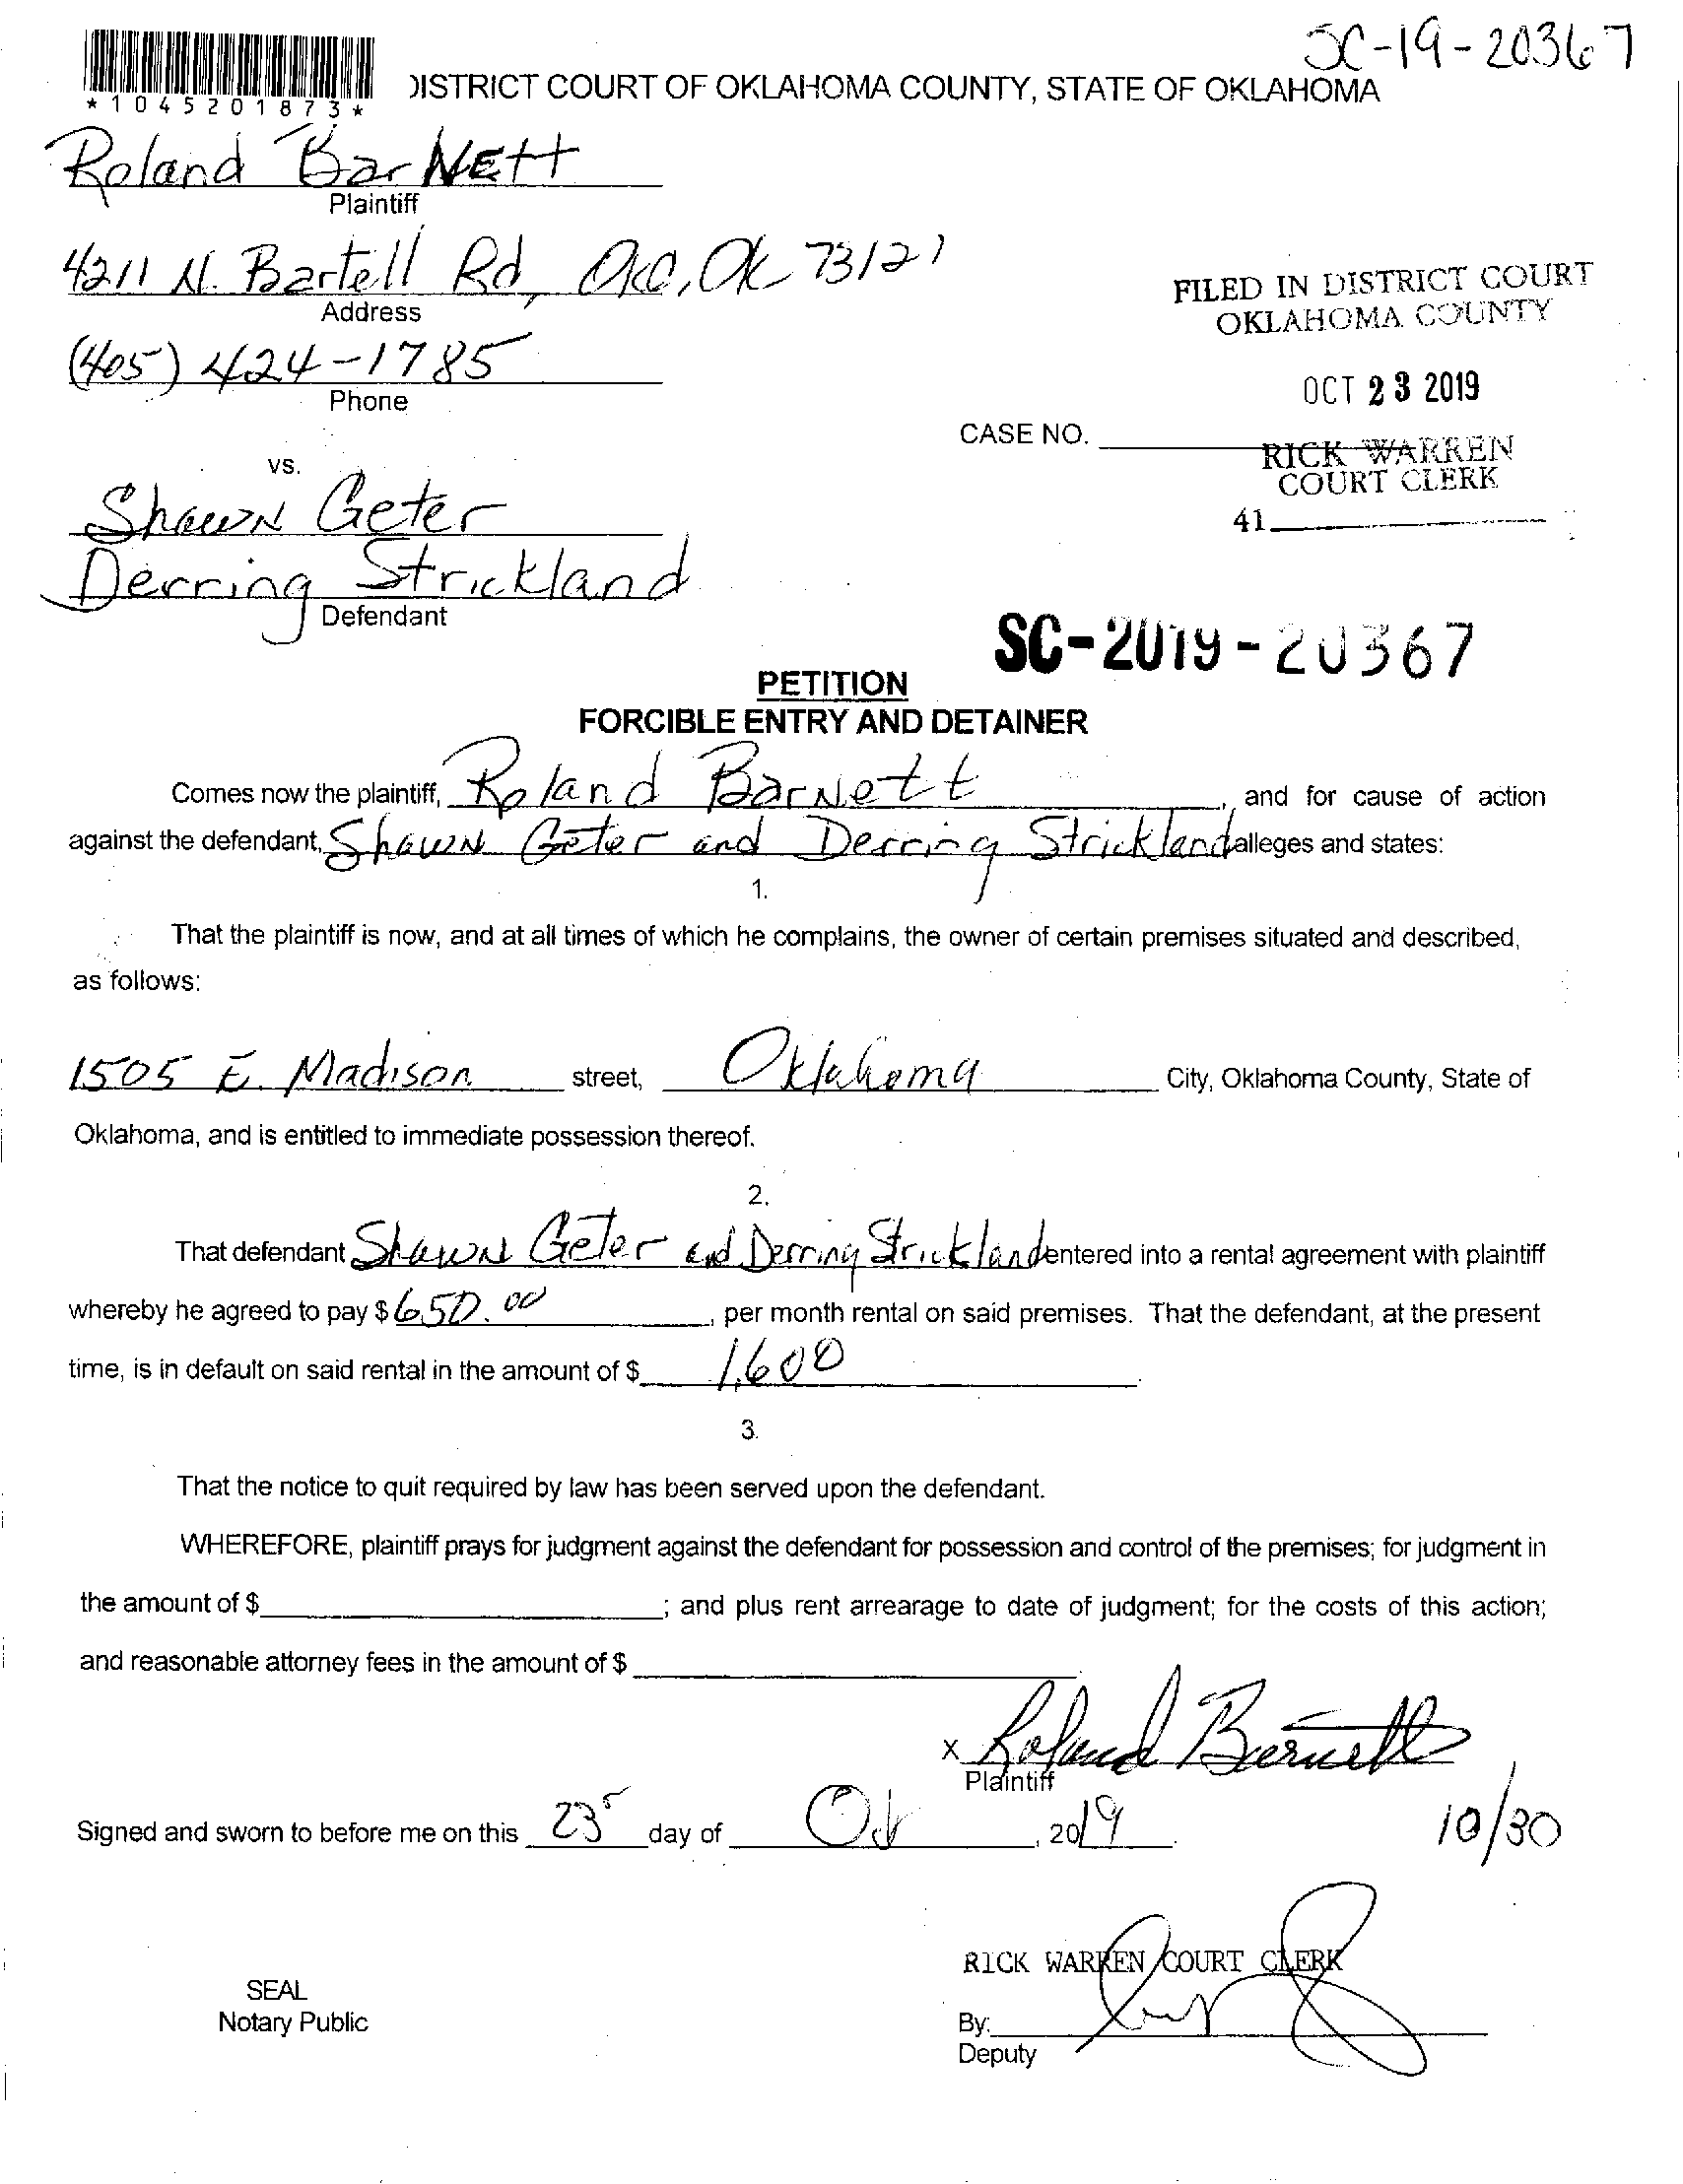 SC-19-20367
*1045201873*
DISTRICT COURT OF OKLAHOMA COUNTY, STATE OF OKLAHOMA
Roland BarNEtt
Plaintiff
4211 N. Bartell Rd, OKC, OK 73121
Address
FILED IN DISTRICT COURT
OKLAHOMA COUNTY
(405) 424-1785
Phone
OCT 23 2019
CASE NO.
RICK WARREN
COURT CLERK
vs.
41
Shawn Geter
Derring Strickland
Defendant
SC-2019-20367
PETITION
FORCIBLE ENTRY AND DETAINER
Comes now the plaintiff, Roland Barnett, and for cause of action
against the defendant, Shawn Geter and Derring Strickland alleges and states:
1.
That the plaintiff is now, and at all times of which he complains, the owner of certain premises situated and described,
as follows:
1505 E. Madison street, Oklahoma City, Oklahoma County, State of
Oklahoma, and is entitled to immediate possession thereof.
2.
That defendant Shawn Geter and Derring Strickland entered into a rental agreement with plaintiff
whereby he agreed to pay $650.00, per month rental on said premises. That the defendant, at the present
time, is in default on said rental in the amount of $ 1,600.
3.
That the notice to quit required by law has been served upon the defendant.
WHEREFORE, plaintiff prays for judgment against the defendant for possession and control of the premises; for judgment in
the amount of $ ; and plus rent arrearage to date of judgment; for the costs of this action;
and reasonable attorney fees in the amount of $
x Roland Barnett
Plaintiff
Signed and sworn to before me on this 23 day of Oct, 2019.
10/30
RICK WARREN COURT CLERK
SEAL
Notary Public
By:
Deputy